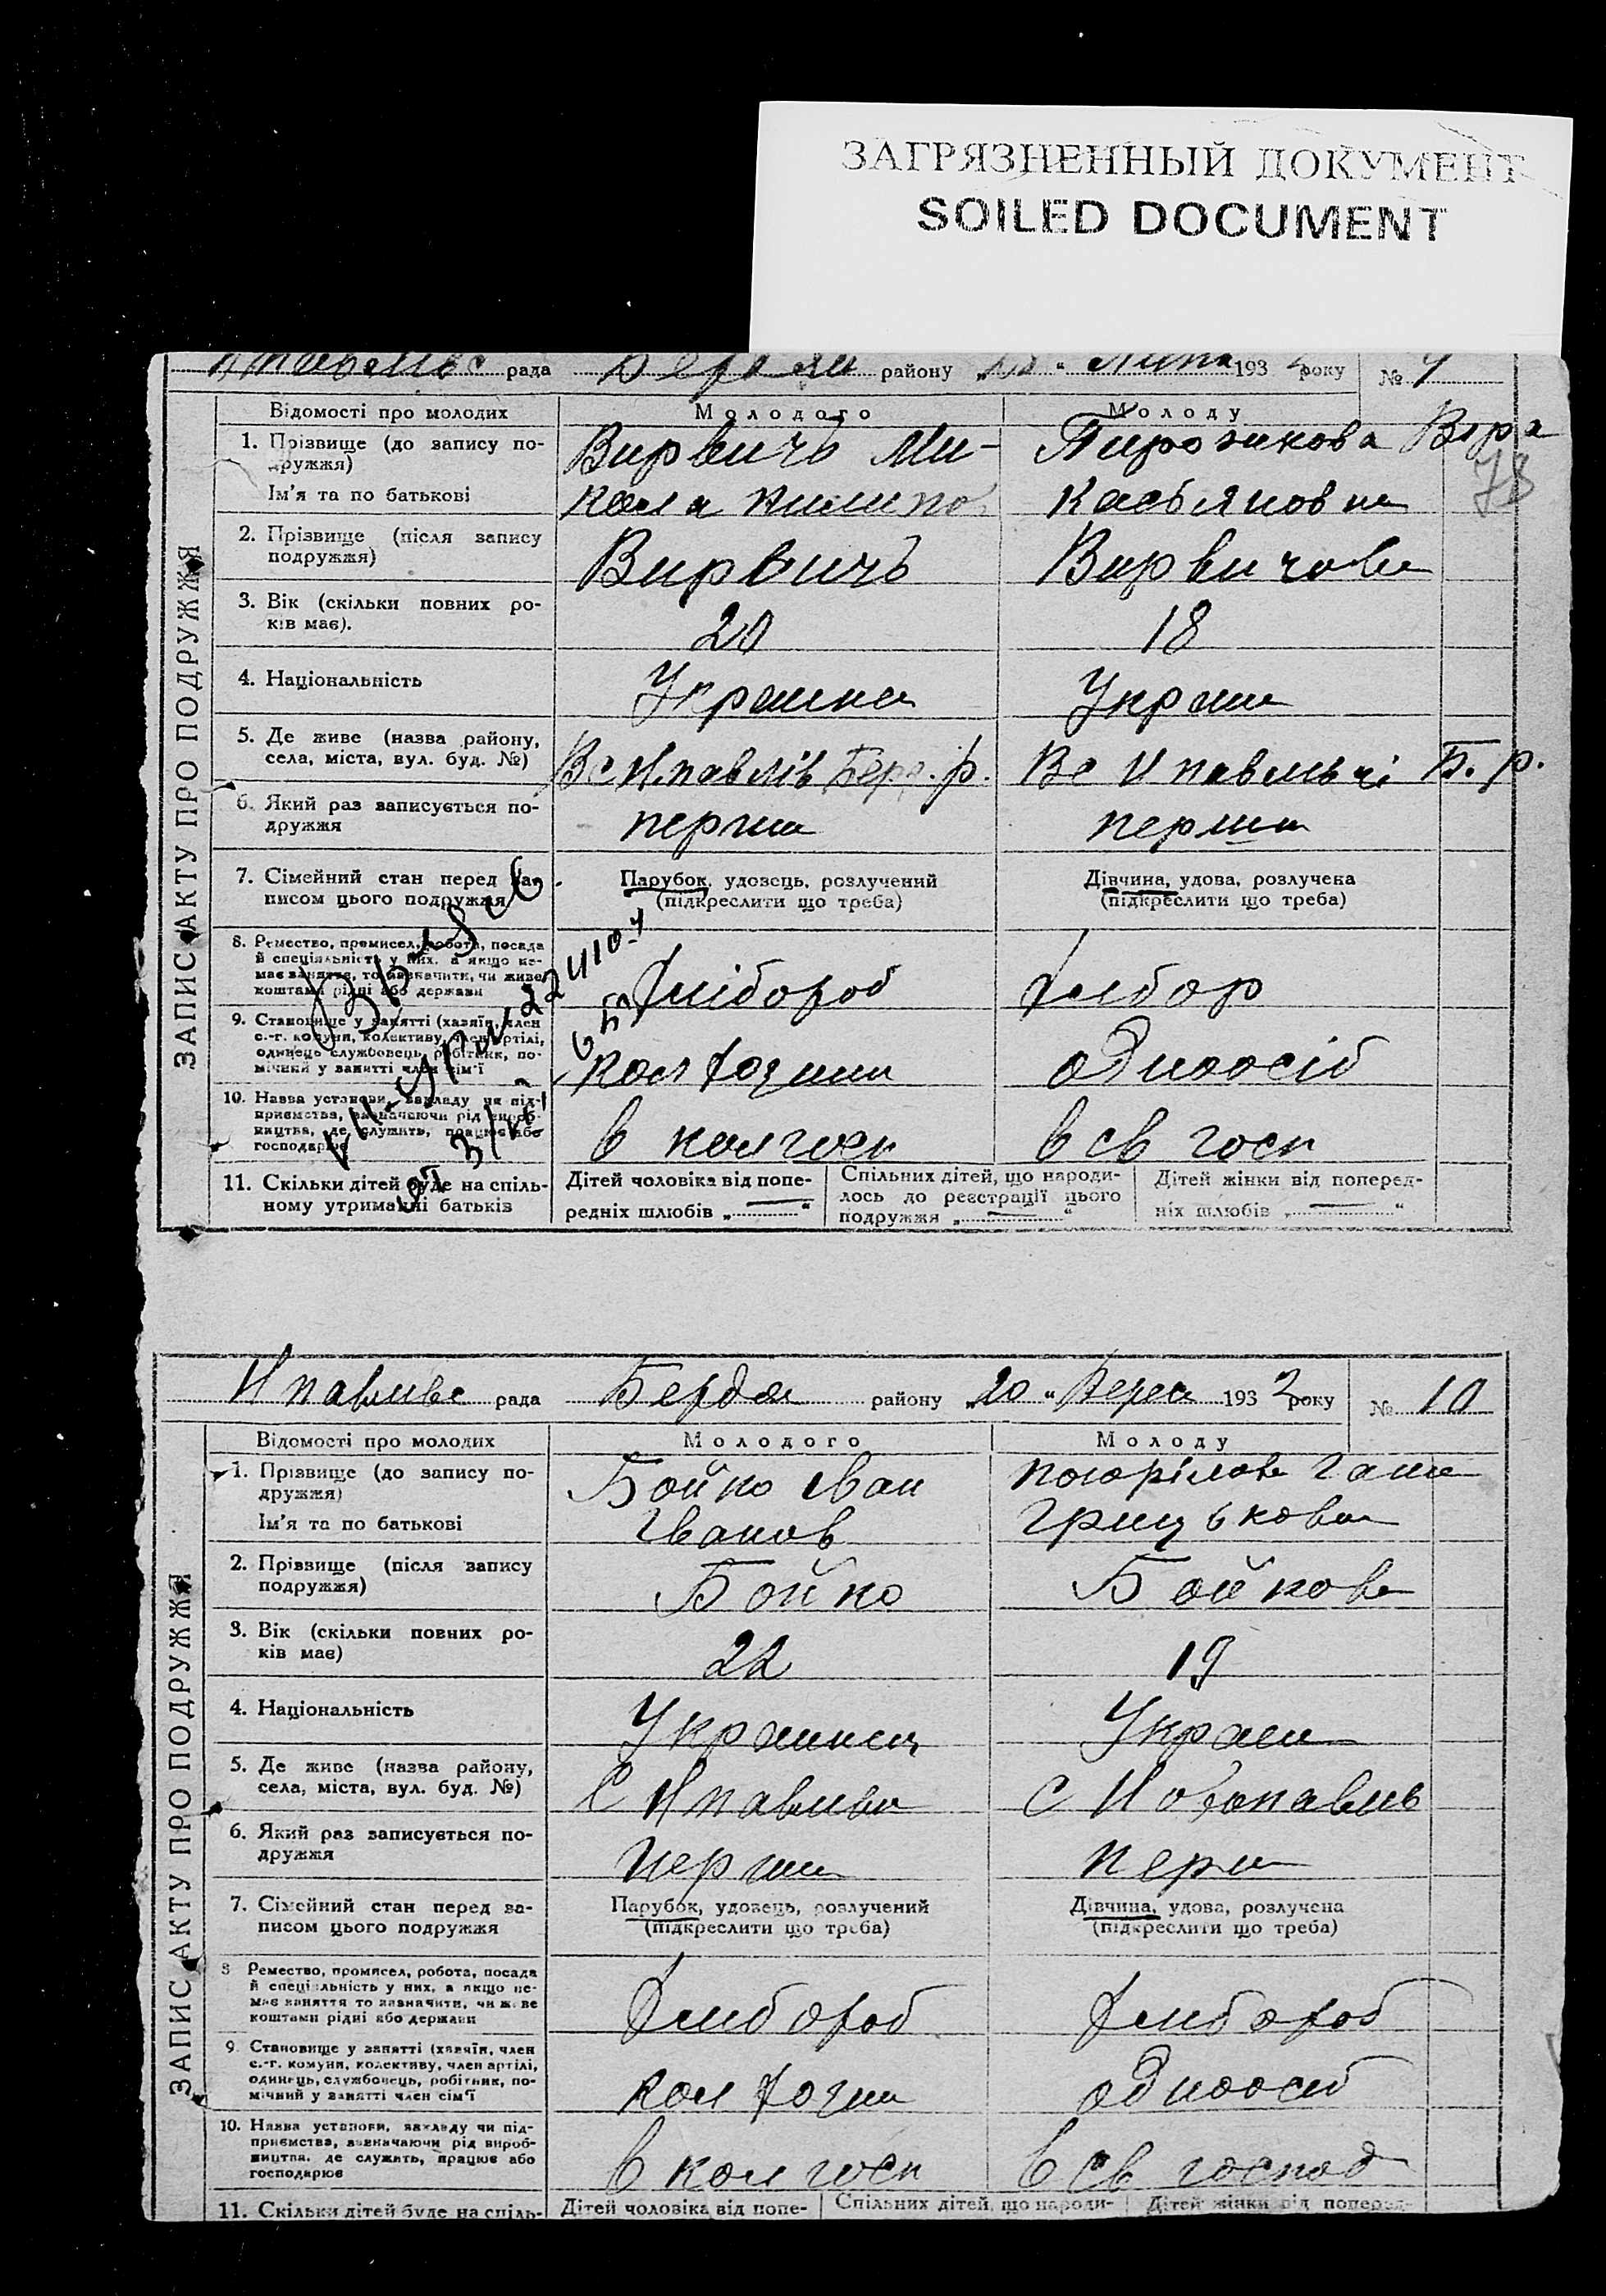 ЗАГРЯЗНЕННЫЙ ДОКУМЕНТ
SOILED DOCUMENT
рада району 193 року №
Відомості про молодих Молодого Молоду
1. Прізвище (до запису по-
дружжя)
Вирвичъ Ми- Пирожкова Вѣра
78
Ім'я та по батькові
кола Касьяновна
2. Прізвище (після запису
подружжя)
Вирвичъ Вирвичова
3. Вік (скільки повних ро-
ків має).
20 18
4. Національність
Украине Украи
5. Де живе (назва району,
села, міста, вул. буд. №)
6. Який раз записується по-
дружжя
перши перши
7. Сімейний стан перед за-
писом цього подружжя
Парубок, удовець, розлучений
(підкреслити що треба)
Дівчина, удова, розлучена
(підкреслити що треба)
8. Ремество, промисел, робота, посада
й спеціяльність у них, а якщо не-
має заняття, то зазначити, чи живе
коштами рідні або держави
хлібороб хлибор
9. Становище у занятті (хазяїн, член
с.-г. комуни, колективу, член артілі,
одинець, службовець, робітник, по-
мічний у занятті член сім'ї
одноосіб
10. Назва установи, закладу чи під-
приємства, зазначаючи рід вироб-
ництва, де служить, працює або
господарює
в колгосп в св госп
11. Скільки дітей буде на спіль-
ному утриманні батьків
Дітей чоловіка від попе-
редніх шлюбів „ — “
Спільних дітей, що народи-
лось до реєстрації цього
подружжя „ — “
Дітей жінки від поперед-
ніх шлюбів „ — “
ЗАПИС АКТУ ПРО ПОДРУЖЖЯ
Н павливс рада Бердя району „20“ Верес 1932 року № 10
Відомості про молодих Молодого Молоду
1. Прізвище (до запису по-
дружжя)
Бойко Іван Погорілова Ганна
Ім'я та по батькові
Іванов Грицькова
2. Прізвище (після запису
подружжя)
Бойко Бойкова
3. Вік (скільки повних ро-
ків має)
22 19
4. Національність
Украинец Украи
5. Де живе (назва району,
села, міста, вул. буд. №)
С Н павливц С Новопавлів
6. Який раз записується по-
дружжя
перши перш
7. Сімейний стан перед за-
писом цього подружжя
Парубок, удовець, розлучений
(підкреслити що треба)
Дівчина, удова, розлучена
(підкреслити що треба)
8 Ремество, промисел, робота, посада
й спеціяльність у них, а якщо не-
має заняття то зазначити, чи живе
коштами рідні або держави
хлибороб хлибороб
9. Становище у занятті (хазяїн, член
с.-г. комуни, колективу, член артілі,
одинець, службовець, робітник, по-
мічний у занятті член сім'ї
одноосиб
10. Назва установи, закладу чи під-
приємства, зазначаючи рід вироб-
ництва, де служить, працює або
господарює
в колгосп в св господ
11. Скільки дітей буде на спіль- Дітей чоловіка від попе- Спільних дітей, що народи- Дітей жінки від поперед-
ЗАПИС АКТУ ПРО ПОДРУЖЖЯ